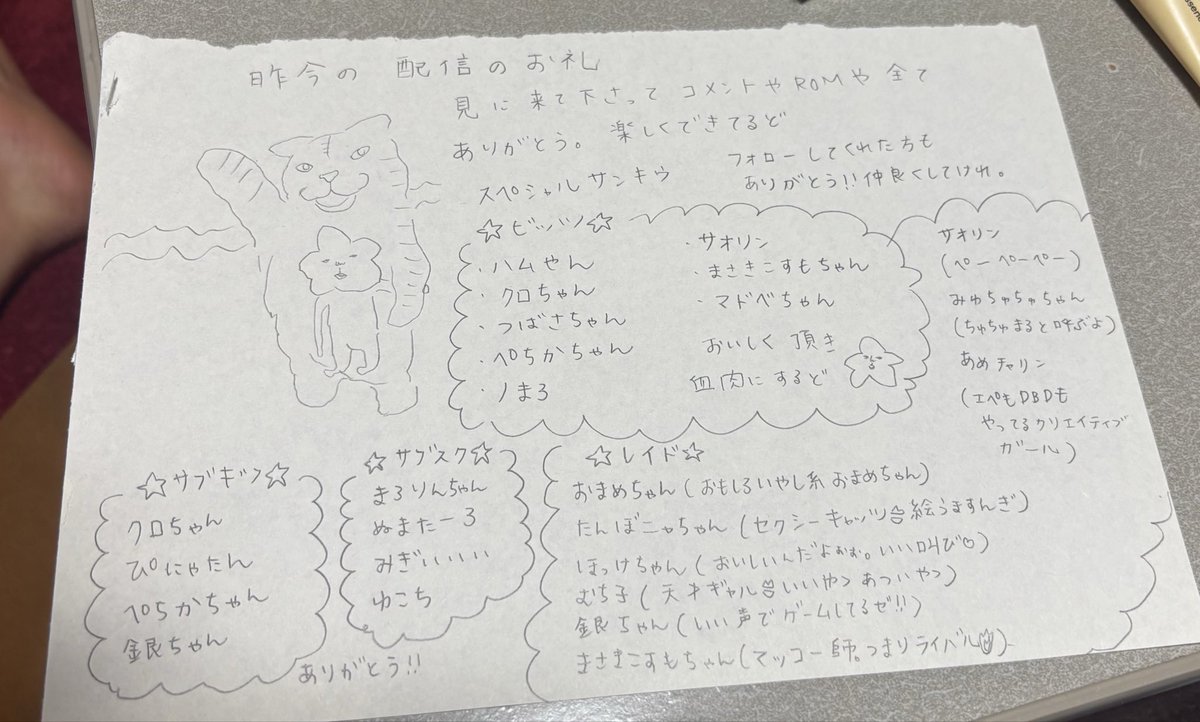 昨今の 配信のお礼
見に来て下さって コメントやROMや全て
ありがとう。 楽しくできてるど
フォローしてくれた方も
ありがとう!!仲良くしてけれ。
スペシャルサンキウ
☆ビッツ☆
・ハムやん
・クロちゃん
・つばさちゃん
・ぺちかちゃん
・ノまろ
・サオリン
・まさきこすもちゃん
・マドベちゃん
おいしく頂き
血肉にするど
☆サブギフ☆
クロちゃん
ぴにゃたん
ぺちかちゃん
金艮ちゃん
☆サブスク☆
まろりんちゃん
ぬまたーろ
みぎぃぃぃぃ
ゆこち
ありがとう!!
☆レイド☆
おまめちゃん(おもしろいやし系おまめちゃん)
たんぽこゃちゃん(セクシーキャッツ 絵うますんぎ)
ほっけちゃん(おいしいんだよぉぉ。いい叫び♡)
むち子(天才ギャル いいやつ あついやつ)
金艮ちゃん(いい声でゲームしてるゼ!!)
まさきこすもちゃん(マッコー師。つまりライバル)
サオリン
(ペーペーペー)
みゅちゅちゅちゃん
(ちゅちゅまると呼ぶよ)
あめチャリン
(エペもDBDも
やってるクリエイティブ
ガール)